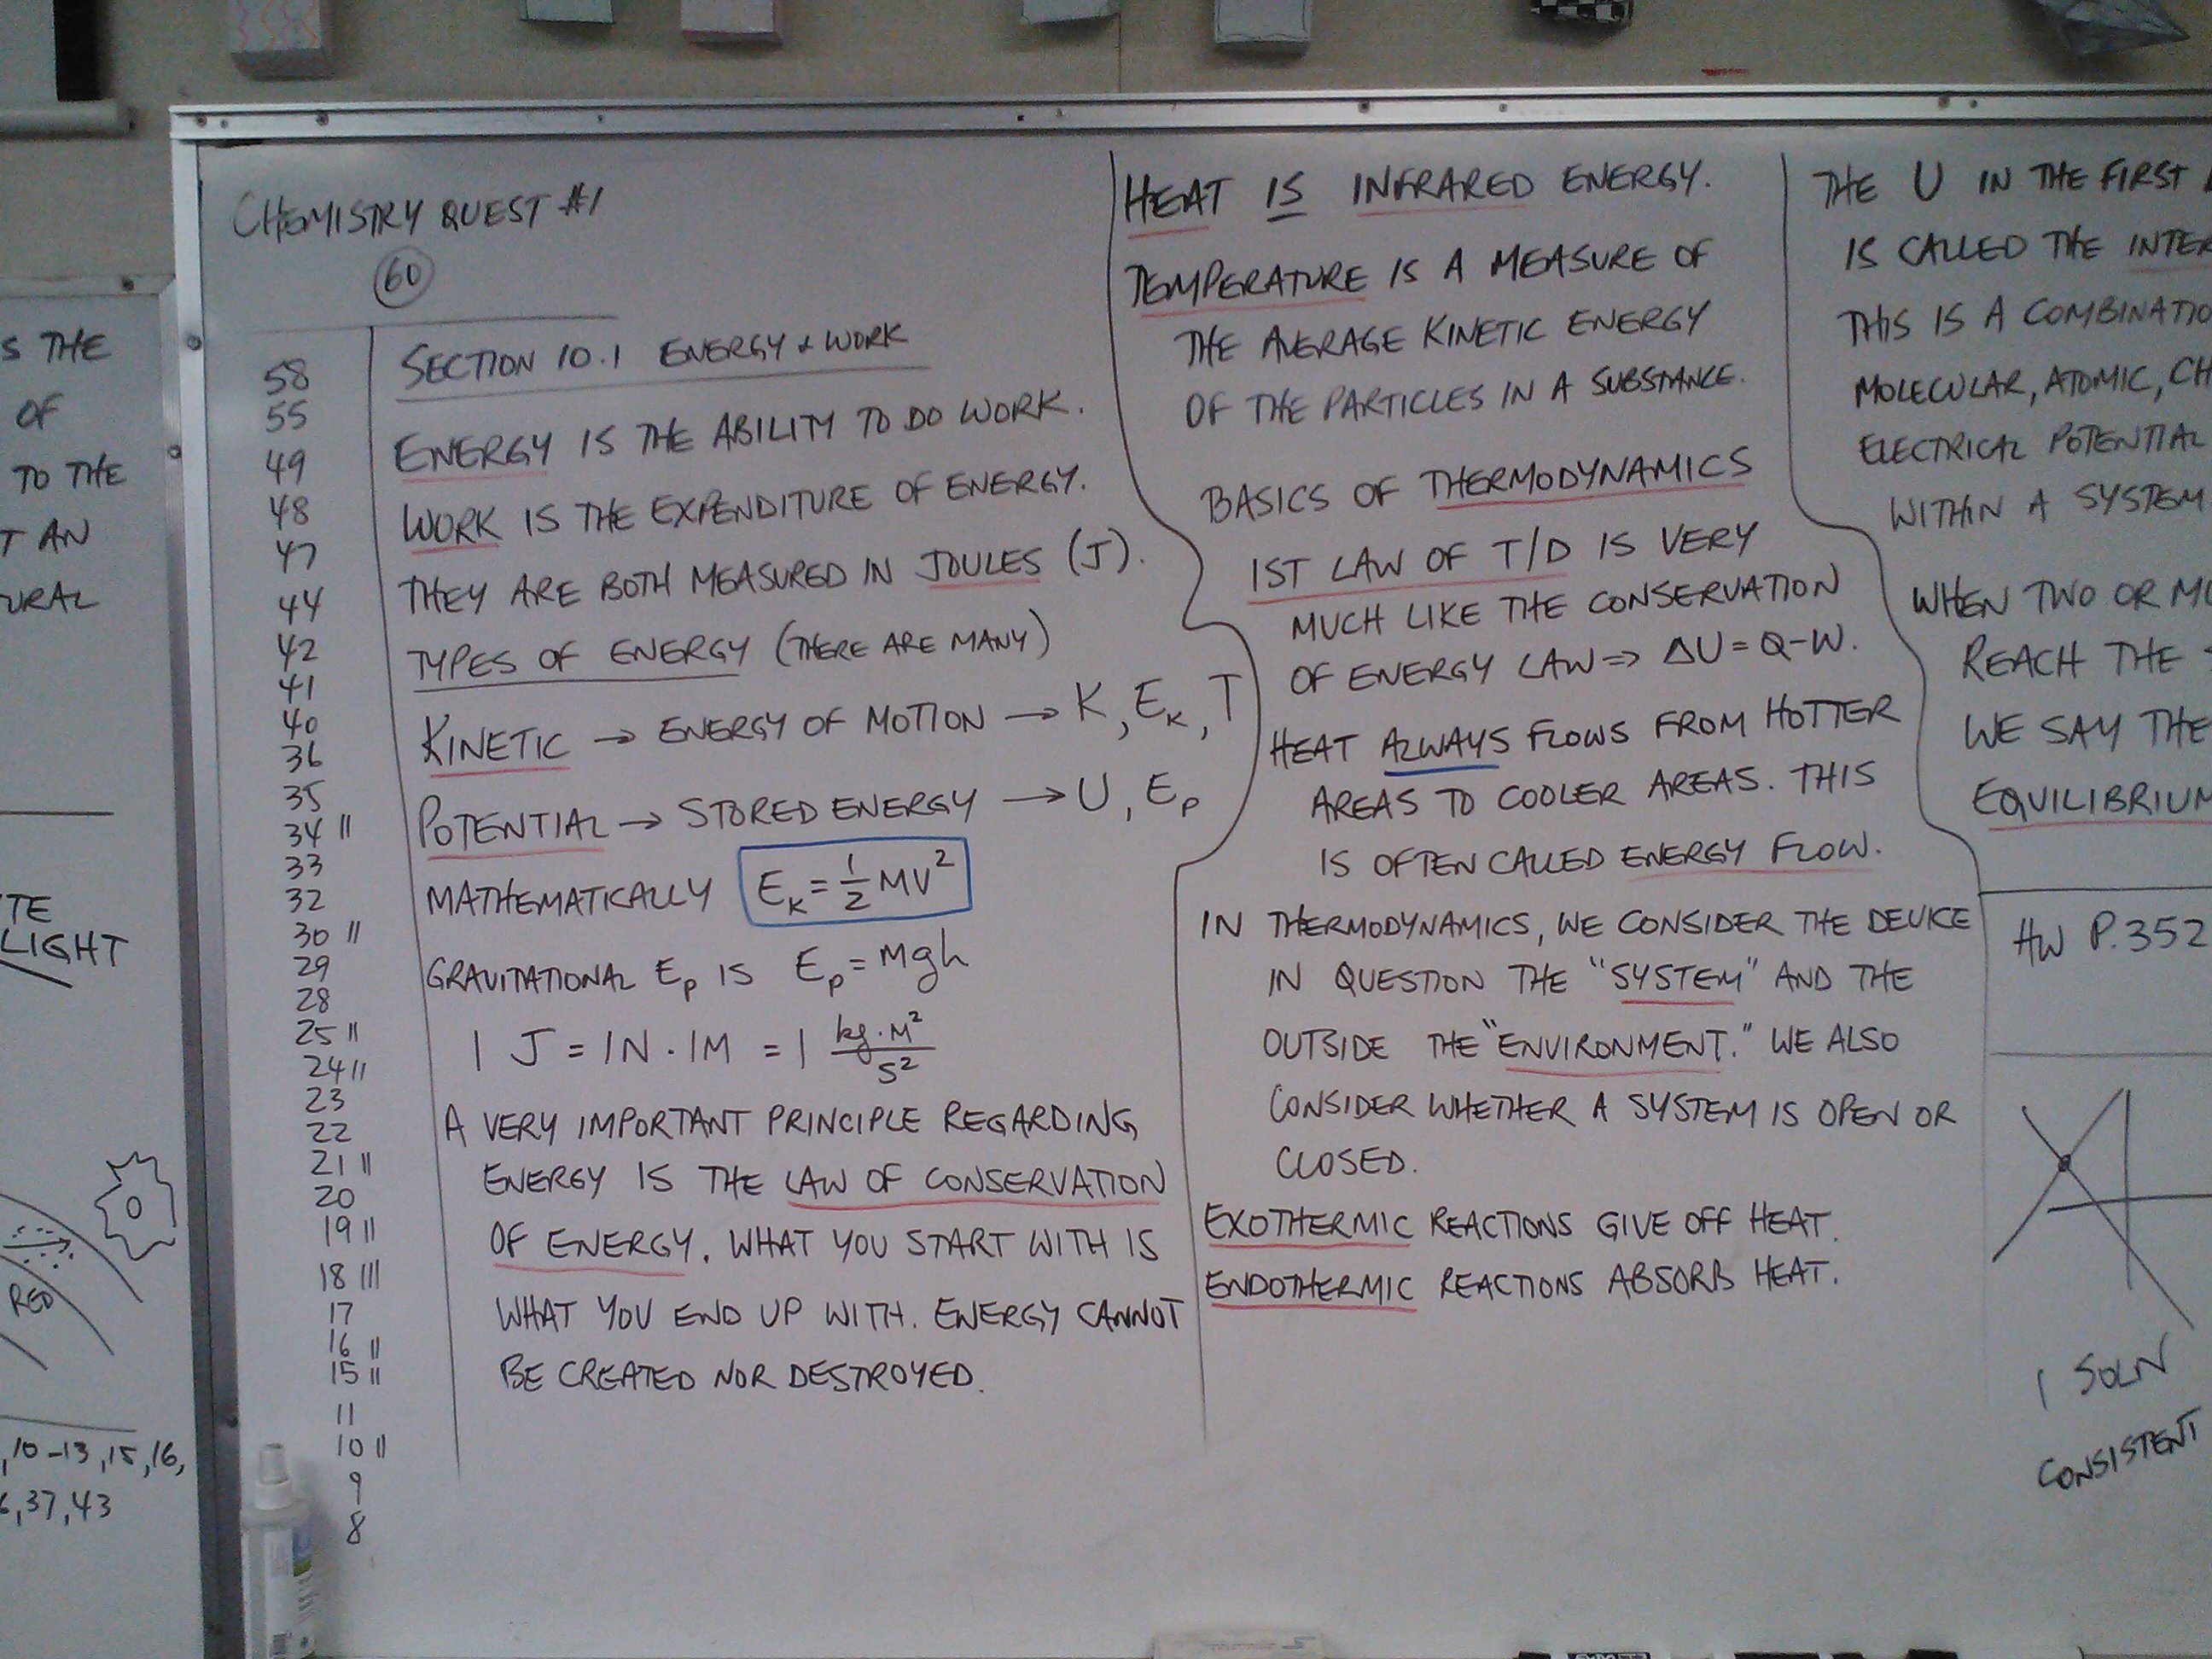 S THE
OF
TO THE
T AN
URAL
TE
LIGHT
RED
, 10-13, 15, 16,
6, 37, 43
CHEMISTRY QUEST #1
60
58
55
49
48
47
44
42
41
40
36
35
34 ||
33
32
30 ||
29
28
25 ||
24 ||
23
22
21 ||
20
19 ||
18 |||
17
16 ||
15 ||
11
10 ||
9
8
SECTION 10.1 ENERGY & WORK
ENERGY IS THE ABILITY TO DO WORK.
WORK IS THE EXPENDITURE OF ENERGY.
THEY ARE BOTH MEASURED IN JOULES (J).
TYPES OF ENERGY (THERE ARE MANY)
KINETIC → ENERGY OF MOTION → K, E_K, T
POTENTIAL → STORED ENERGY → U, E_P
MATHEMATICALLY E_K = 1/2 MV²
GRAVITATIONAL E_P IS E_P = mgh
1 J = 1N · 1M = 1 kg·M²/S²
A VERY IMPORTANT PRINCIPLE REGARDING
ENERGY IS THE LAW OF CONSERVATION
OF ENERGY. WHAT YOU START WITH IS
WHAT YOU END UP WITH. ENERGY CANNOT
BE CREATED NOR DESTROYED.
HEAT IS INFRARED ENERGY.
TEMPERATURE IS A MEASURE OF
THE AVERAGE KINETIC ENERGY
OF THE PARTICLES IN A SUBSTANCE.
BASICS OF THERMODYNAMICS
1ST LAW OF T/D IS VERY
MUCH LIKE THE CONSERVATION
OF ENERGY LAW ⇒ ΔU = Q-W.
HEAT ALWAYS FLOWS FROM HOTTER
AREAS TO COOLER AREAS. THIS
IS OFTEN CALLED ENERGY FLOW.
IN THERMODYNAMICS, WE CONSIDER THE DEVICE
IN QUESTION THE "SYSTEM" AND THE
OUTSIDE THE "ENVIRONMENT." WE ALSO
CONSIDER WHETHER A SYSTEM IS OPEN OR
CLOSED.
EXOTHERMIC REACTIONS GIVE OFF HEAT.
ENDOTHERMIC REACTIONS ABSORB HEAT.
THE U IN THE FIRST
IS CALLED THE INTER
THIS IS A COMBINATIO
MOLECULAR, ATOMIC, CH
ELECTRICAL POTENTIAL
WITHIN A SYSTEM
WHEN TWO OR MO
REACH THE
WE SAY THE
EQUILIBRIUM
HW P. 352
1 SOLN
CONSISTENT